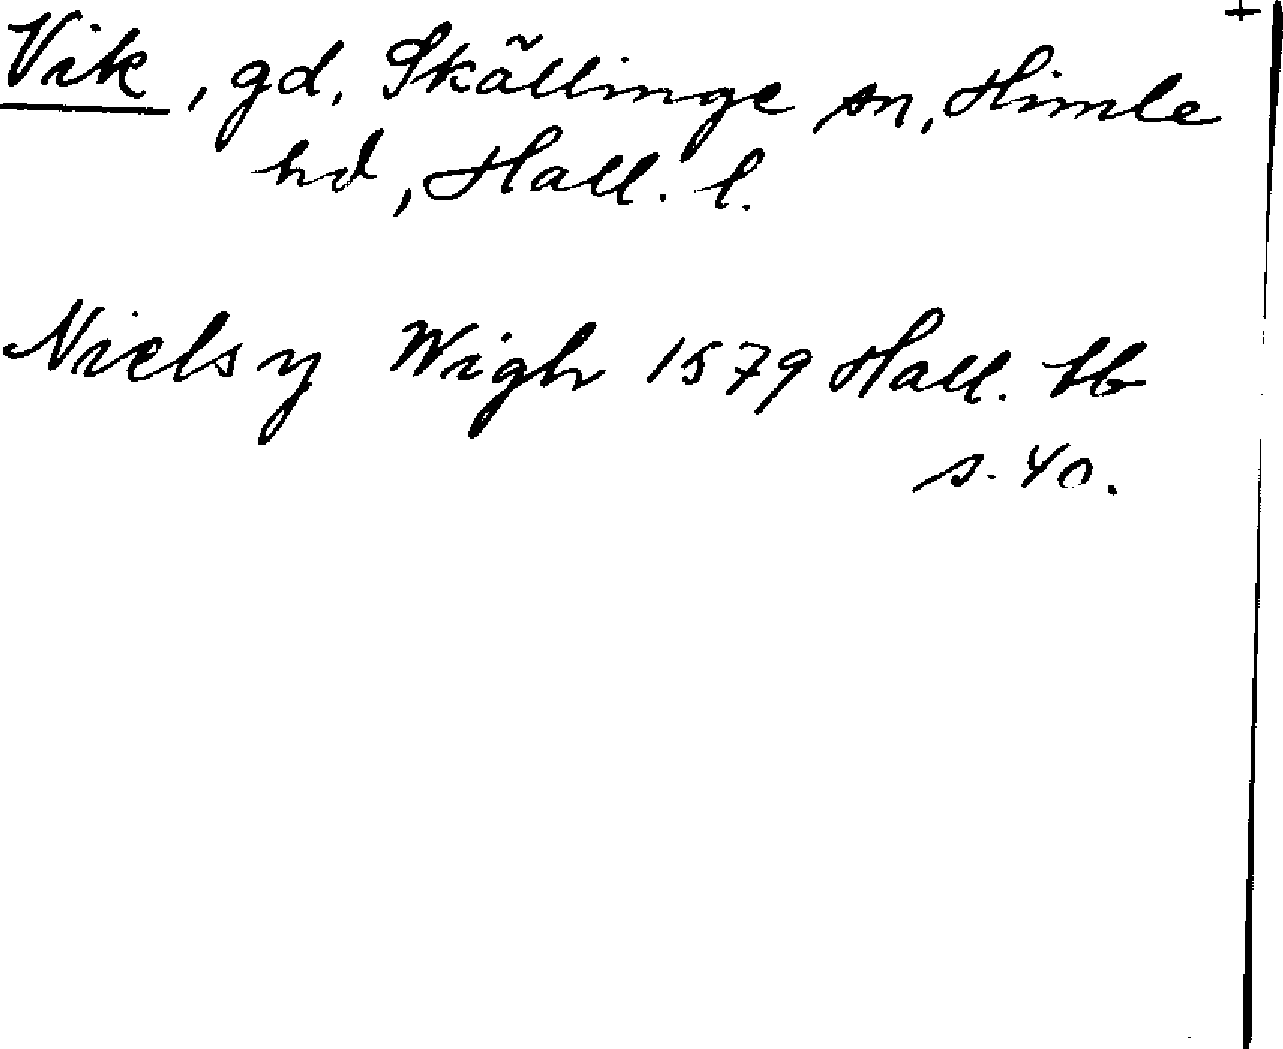 +
Vik, gd, Skällinge sn, Himle
hd, Hall. l.
Niels y Wigh 1579 Hall. tb
s. 40.